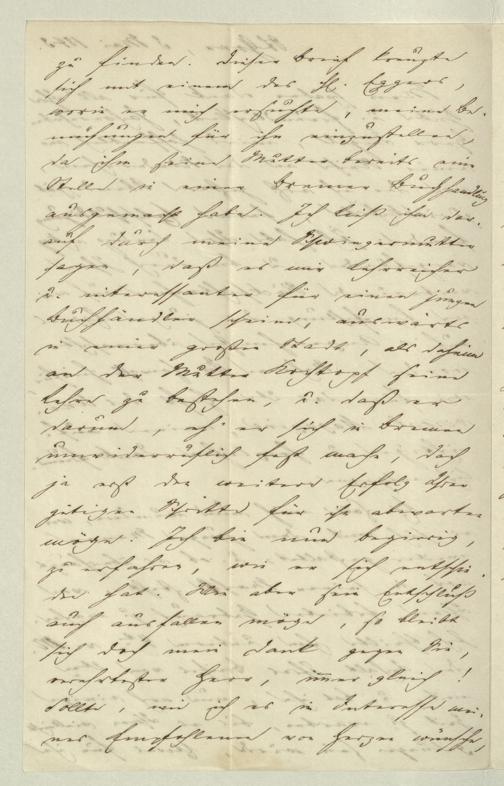 zu finden. Dieser Brief kreuzte
sich mit einem des H. Eggers,
worin er mich ersuchte, meine Be-
mühungen für ihn einzustellen,
da ihm seine Mutter bereits eine
Stelle in einer Bremer Buchhandlung
ausgemacht habe. Ich ließ ihm dar-
auf durch meine Schwiegermutter
sagen, daß es mir lehrreicher
u. interessanter für einen jungen
Buchhändler scheine, auswärts
in einer großen Stadt, als daheim
an der Mutter Kochtopf seine
Lehre zu bestehen, u. daß er
darum, eh' er sich in Bremen
unwiderruflich fest mache, doch
ja erst den weitern Erfolg Ihrer
gütigen Schritte für ihn abwarten
möge. Ich bin nun begierig,
zu erfahren, wie er sich entschie-
den hat. Wie aber sein Entschluß
auch ausfallen möge, so bleibt
sich doch mein Dank gegen Sie,
verehrtester Herr, immer gleich!
Sollte, wie ich es im Interesse mei-
nes Empfohlenen von Herzen wünsche,